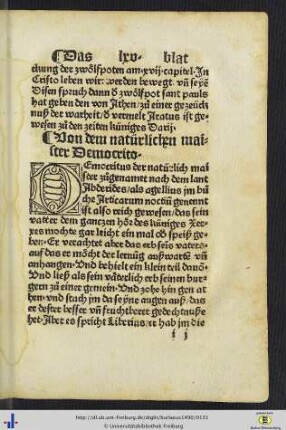 ¶Das lxv· blat
ckung der zwölfpoten am·xvij·capitel·In
Cristo leben wir: werden bewegt vñ seyẽ
Disen spruch dann d̕ zwölfpot sant pauls
hat geben den von Athen/ zů einer gezeück
nuß der warheit/ d̕ vermelt Aratus ist ge
wesen zů den zeiten küniges Darij·
¶Von dem natürlichen mai
ster Democrito·
DEmocritus der natürlich mai
ster zůgenamet nach dem lant
Abderides/ als agellius jm bů
che Atticarum noctiũ genennt
ist also reich gewesen/ das sein
vatter dem ganczen hör des küniges Xer
xes mochte gar leicht ein mal ob speiß ge
ben· Er verachtet aber das erb seüs vaters·
auf das er möcht der lernůg außwartẽ vñ
anhangen· Vnd behielt ein klein teil dauõ·
Vnd ließ als sein väterlich erb seinen bur
gern zů einer gemein· Vnd zohe hin gen at
hen· vnd stach jm da seyne augen auß· das
er dester besser vñ fruchtberer gedechtnuße
het· Aber es spricht Liberius/ er hab jm die
http://dl.ub.uni-freiburg.de/diglit/burlaeus1490/0131
© Universitätsbibliothek Freiburg